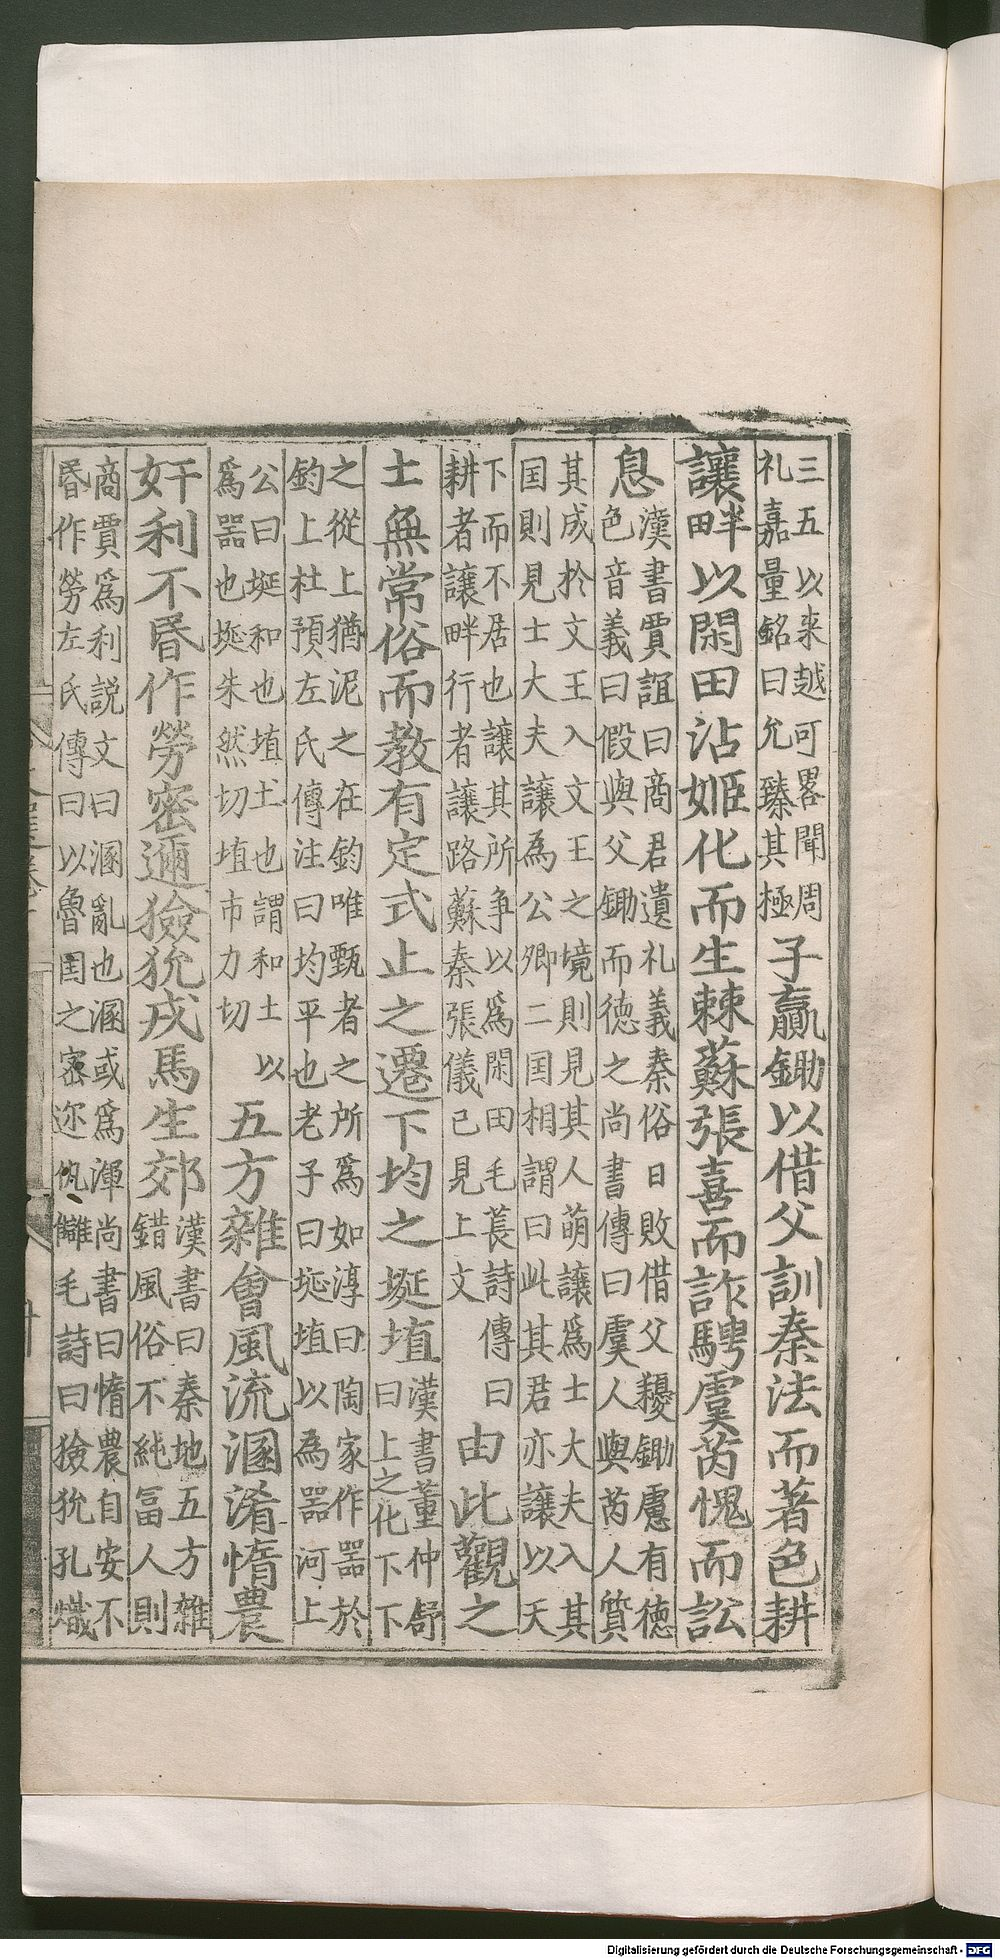 三五以来越可畧聞周
礼嘉量銘曰允臻其極
子贏鋤以借父訓秦法而著色耕
讓畔以閑田沾姬化而生棘蘇張喜而詐騁虞芮愧而訟
息
漢書賈誼曰商君遺礼義秦俗日敗借父耰鋤慮有德
色音義曰假與父鋤而德之尚書傳曰虞人與芮人質
其成於文王入文王之境則見其人萌讓爲士大夫入其
国則見士大夫讓為公卿二国相謂曰此其君亦讓以天
下而不居也讓其所争以爲閑田毛萇詩傳曰
耕者讓畔行者讓路蘇秦張儀已見上文
由此觀之
士無常俗而教有定式上之遷下均之埏埴
漢書董仲舒
曰上之化下下
之從上猶泥之在鈞唯甄者之所爲如淳曰陶家作器於
鈞上杜預左氏傳注曰均平也老子曰埏埴以為器河上
公曰埏和也埴土也謂和土以
爲器也埏朱然切埴市力切
五方雜會風流溷淆惰農
奸利不昬作勞密邇獫狁戎馬生郊
漢書曰秦地五方雜
錯風俗不純冨人則
商賈爲利説文曰溷亂也溷或爲渾尚書曰惰農自安不
昬作勞左氏傳曰以魯国之密迩仇讎毛詩曰獫狁孔熾
Digitalisierung gefördert durch die Deutsche Forschungsgemeinschaft - DFG